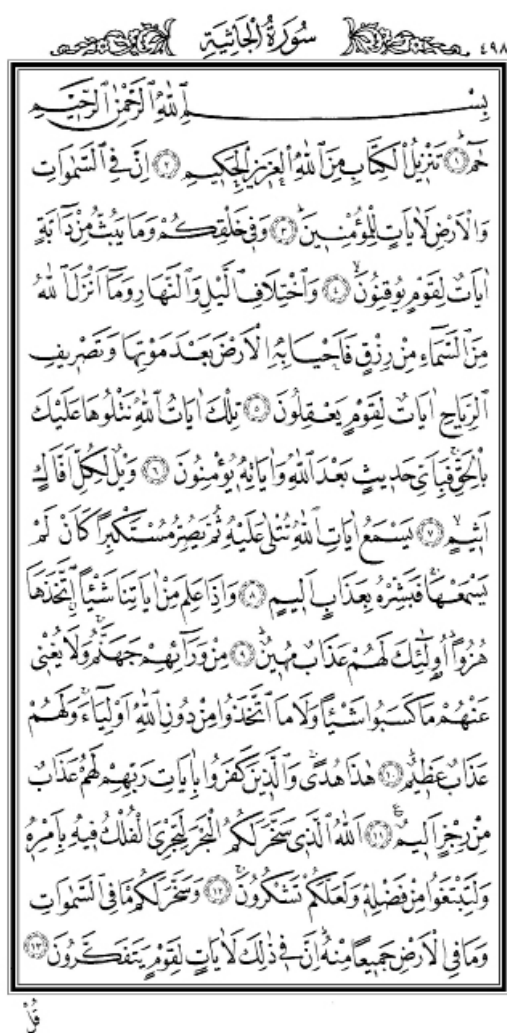 ٤٩٨ سُورَةُ الْجَاثِيَةِ
بِسْمِ اللّٰهِ الرَّحْمٰنِ الرَّحٖيمِ
حٰمٓۚ ﴿١﴾ تَنْزٖيلُ الْكِتَابِ مِنَ اللّٰهِ الْعَزٖيزِ الْحَكٖيمِ ﴿٢﴾ اِنَّ فِي السَّمٰوَاتِ
وَالْاَرْضِ لَاٰيَاتٍ لِلْمُؤْمِنٖينَۜ ﴿٣﴾ وَفٖي خَلْقِكُمْ وَمَا يَبُثُّ مِنْ دَٓابَّةٍ
اٰيَاتٌ لِقَوْمٍ يُوقِنُونَۙ ﴿٤﴾ وَاخْتِلَافِ الَّيْلِ وَالنَّهَارِ وَمَٓا اَنْزَلَ اللّٰهُ
مِنَ السَّمَٓاءِ مِنْ رِزْقٍ فَاَحْيَا بِهِ الْاَرْضَ بَعْدَ مَوْتِهَا وَتَصْرٖيفِ
الرِّيَاحِ اٰيَاتٌ لِقَوْمٍ يَعْقِلُونَ ﴿٥﴾ تِلْكَ اٰيَاتُ اللّٰهِ نَتْلُوهَا عَلَيْكَ
بِالْحَقِّۚ فَبِاَيِّ حَدٖيثٍ بَعْدَ اللّٰهِ وَاٰيَاتِهٖ يُؤْمِنُونَ ﴿٦﴾ وَيْلٌ لِكُلِّ اَفَّاكٍ
اَثٖيمٍۙ ﴿٧﴾ يَسْمَعُ اٰيَاتِ اللّٰهِ تُتْلٰى عَلَيْهِ ثُمَّ يُصِرُّ مُسْتَكْبِرًا كَاَنْ لَمْ
يَسْمَعْهَاۚ فَبَشِّرْهُ بِعَذَابٍ اَلٖيمٍ ﴿٨﴾ وَاِذَا عَلِمَ مِنْ اٰيَاتِنَا شَيْـًٔا اتَّخَذَهَا
هُزُوًاۜ اُو۬لٰٓئِكَ لَهُمْ عَذَابٌ مُهٖينٌۜ ﴿٩﴾ مِنْ وَرَٓائِهِمْ جَهَنَّمُۚ وَلَا يُغْنٖي
عَنْهُمْ مَا كَسَبُوا شَيْـًٔا وَلَا مَا اتَّخَذُوا مِنْ دُونِ اللّٰهِ اَوْلِيَٓاءَۚ وَلَهُمْ
عَذَابٌ عَظٖيمٌۜ ﴿١٠﴾ هٰذَا هُدًىۚ وَالَّذٖينَ كَفَرُوا بِاٰيَاتِ رَبِّهِمْ لَهُمْ عَذَابٌ
مِنْ رِجْزٍ اَلٖيمٌࣖ ﴿١١﴾ اَللّٰهُ الَّذٖي سَخَّرَ لَكُمُ الْبَحْرَ لِتَجْرِيَ الْفُلْكُ فٖيهِ بِاَمْرِهٖ
وَلِتَبْتَغُوا مِنْ فَضْلِهٖ وَلَعَلَّكُمْ تَشْكُرُونَۚ ﴿١٢﴾ وَسَخَّرَ لَكُمْ مَا فِي السَّمٰوَاتِ
وَمَا فِي الْاَرْضِ جَمٖيعًا مِنْهُۜ اِنَّ فٖي ذٰلِكَ لَاٰيَاتٍ لِقَوْمٍ يَتَفَكَّرُونَ ﴿١٣﴾
قُلْ